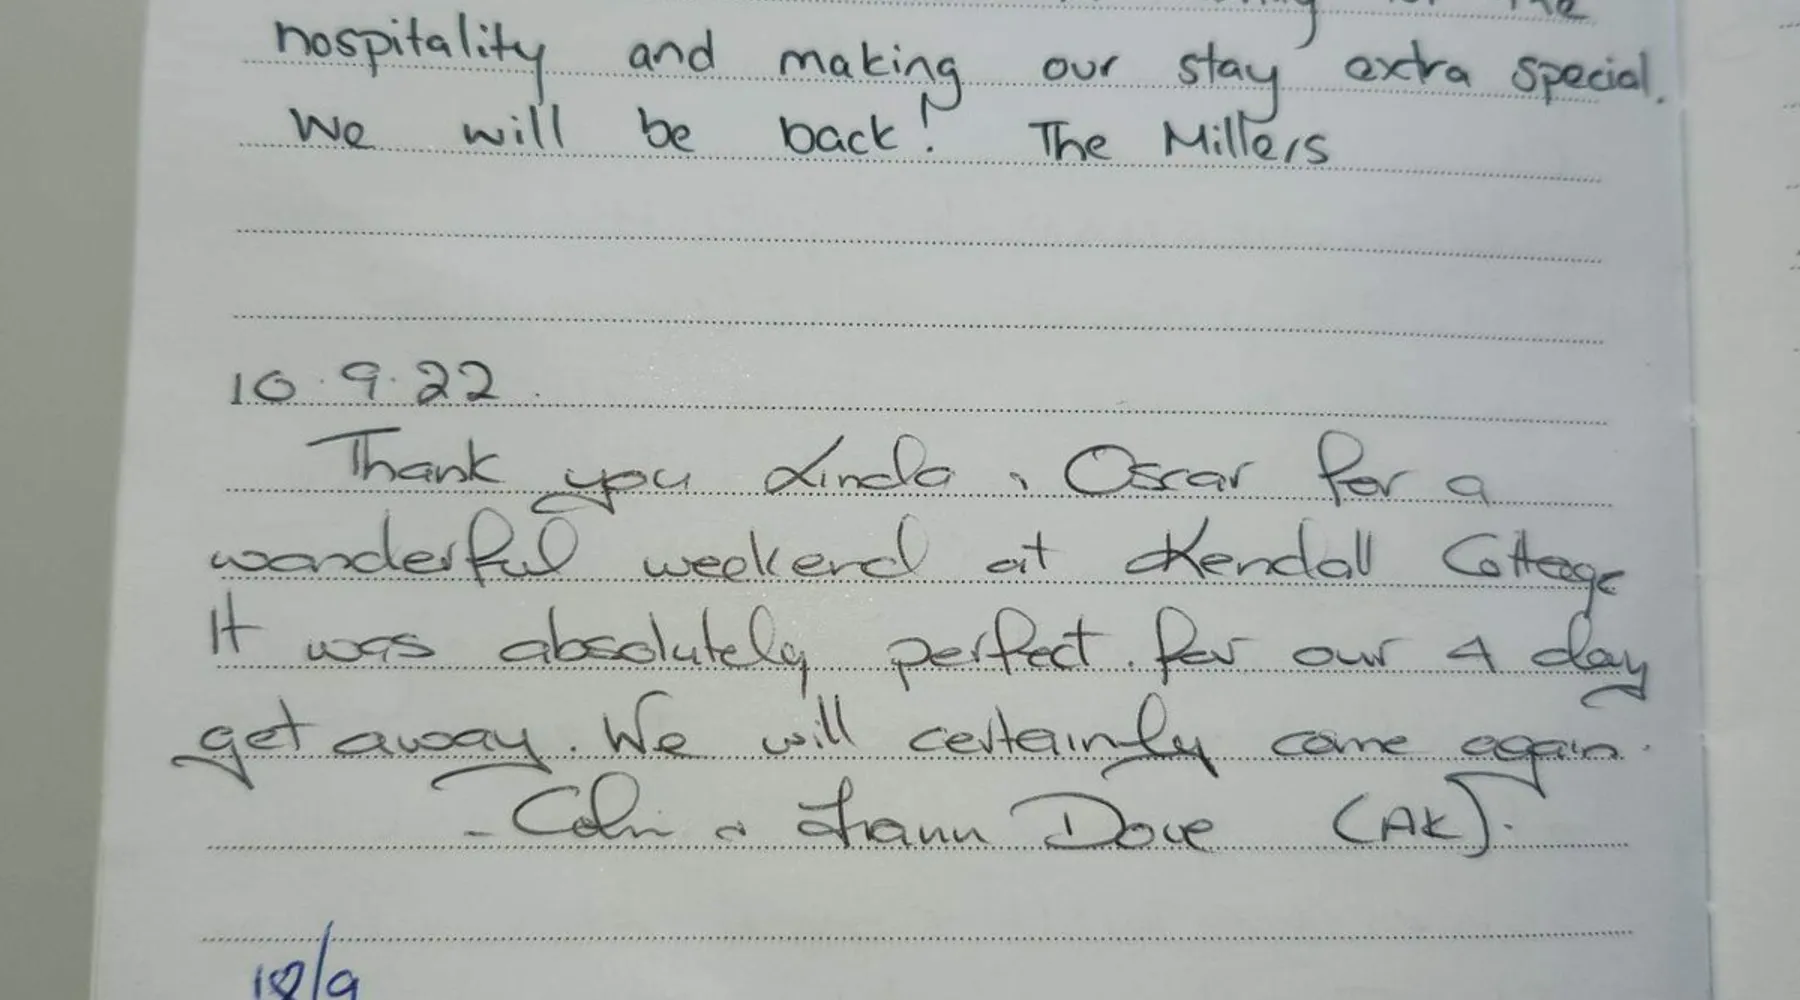 the
hospitality and making our stay extra special.
We will be back! The Millers
10.9.22.
Thank you Linda & Oscar for a
wonderful weekend at Kendall Cottage
It was absolutely perfect. for our 4 day
get away. We will certainly come again.
- Colin & Dove (AK).
18/9